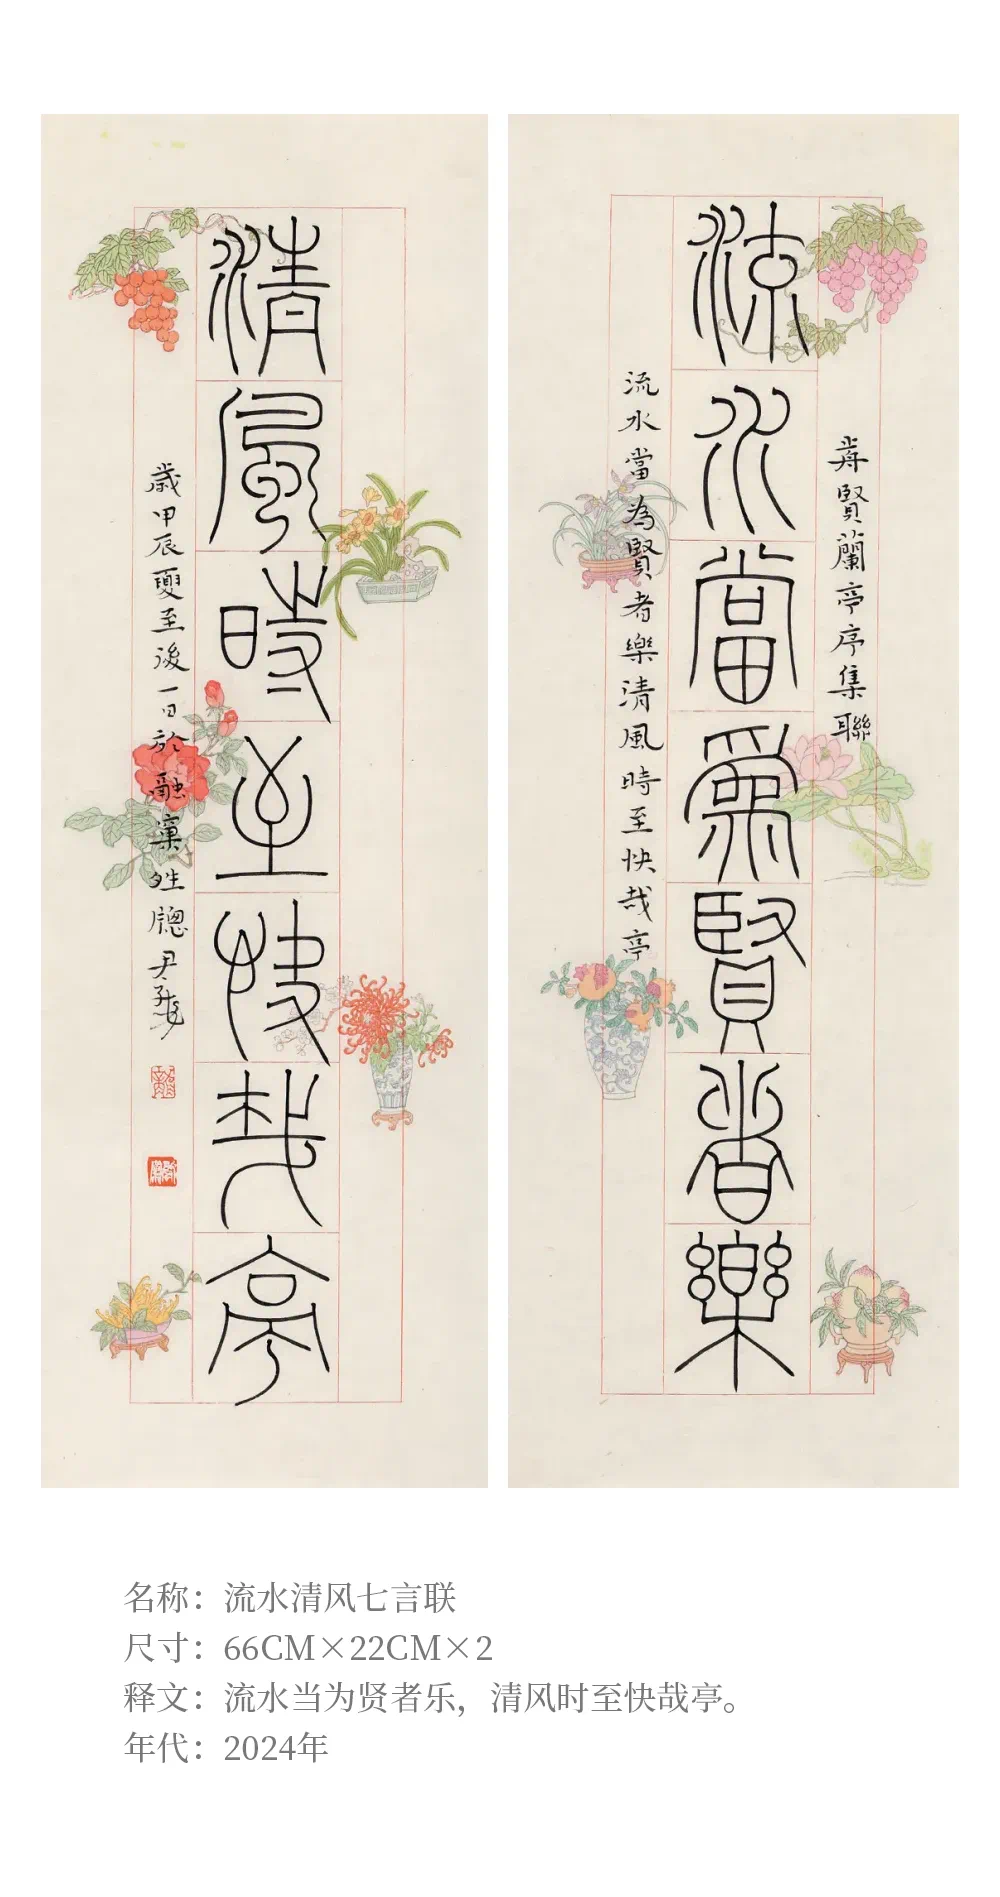 流水當爲賢者樂
弄賢蘭亭序集聯
流水當為賢者樂清風時至快哉亭
清風時至快哉亭
歲甲辰夏至後一日於融窠姓牕尹子龍
名称：流水清风七言联
尺寸：66CM×22CM×2
释文：流水当为贤者乐，清风时至快哉亭。
年代：2024年